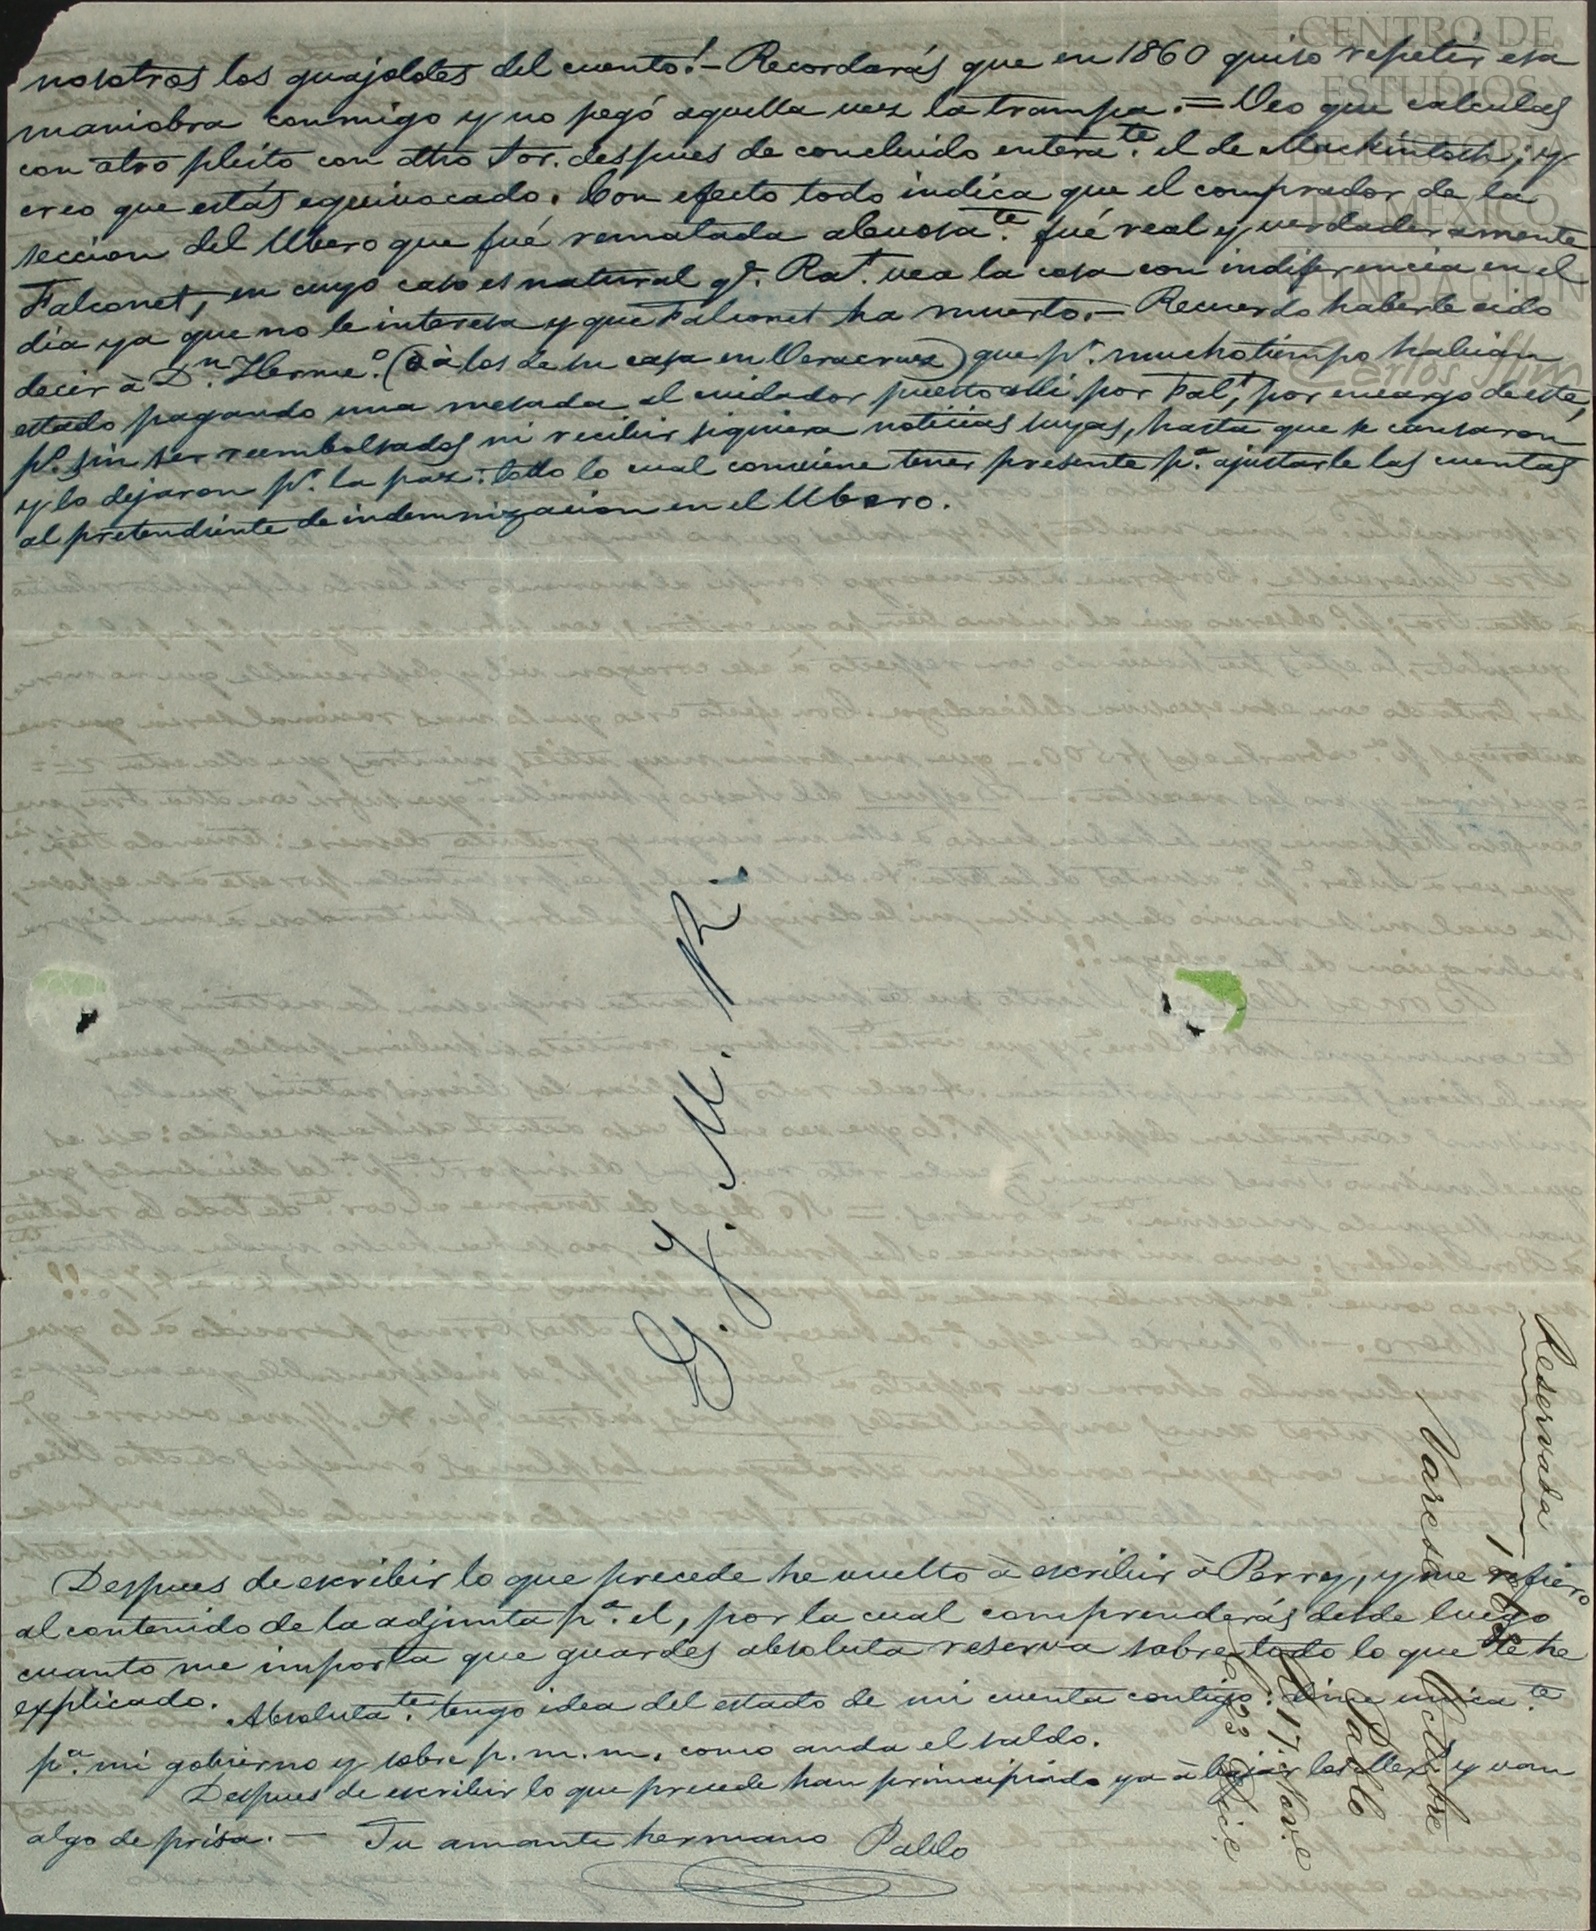 nosotros los guajolotes del cuento!- Recordarás que en 1860 quiso repetir esa
maniobra conmigo y no pegó aquella vez la trampa.= Veo que calculas
con otro pleito con otro Sor. despues de concluido entera.te el de Mackintosh; y
creo que estás equivocado. Con efecto todo indica que el comprador de la
seccion del Ubero que fué rematada abusiva.te fué real y verdaderamente
Falconet, en cuyo caso es natural q.e Ra.t vea la cosa con indiferencia en el
dia ya que no le interesa y que Falconet ha muerto.- Recuerdo haberle oido
decir à D.n Herme.o (ò à los de su casa en Veracruz) que p.r mucho tiempo habian
estado pagando una mesada al cuidador puesto alli por Fal.t, por encargo de este,
p.o sin ser reembolsados ni recibir siquiera noticias suyas, hasta que se cansaron
y lo dejaron p.r la paz: todo lo cual conviene tener presente p.a ajustarle las cuentas
al pretendiente de indemnizacion en el Ubero.
G. J. M. R.
Reservada
1868
Varesa Octubre
Pablo
R 17. Nov.e
C 23 Dic.e
Despues de escribir lo que precede he vuelto à escribir à Perry, y me refiero
al contenido de la adjunta p.a el, por la cual comprenderás desde luego
cuanto me importa que guardes absoluta reserva sobre todo lo que te he
explicado. Absoluta.te tengo idea del estado de mi cuenta contigo: dime unica.te
p.a mi gobierno y sobre p. m. m. como anda el saldo.
Despues de escribir lo que precede han principiado ya à bajar los Mex.s y van
algo de prisa.- Tu amante hermano Pablo
CENTRO DE
ESTUDIOS
DE HISTORIA
DE MÉXICO
FUNDACIÓN
Carlos Slim